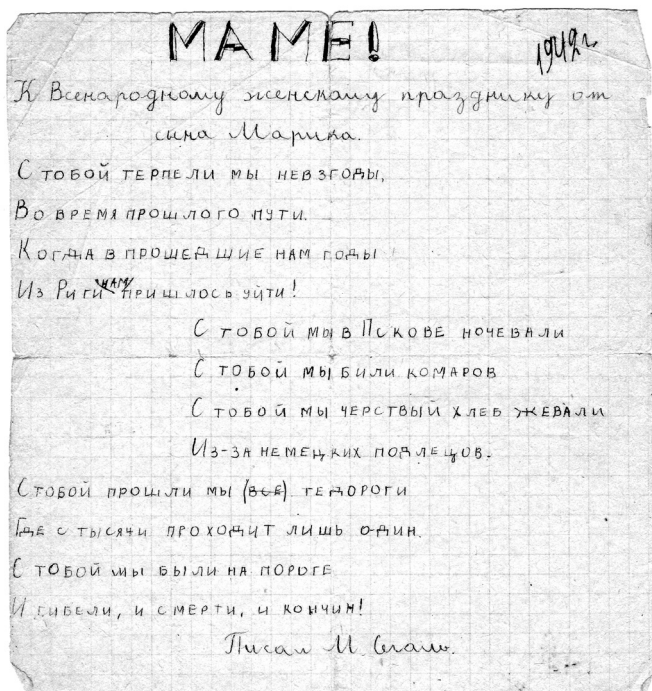 МАМЕ!
1942г
К Всенародному женскому празднику от
сына Марика.
С тобой терпели мы невзгоды,
Во время прошлого пути.
Когда в прошедшие нам годы
Из Риги нам пришлось уйти!
С тобой мы в Пскове ночевали
С тобой мы били комаров
С тобой мы черствый хлеб жевали
Из-за немецких подлецов.
С тобой прошли мы (все) те дороги
Где с тысячи проходит лишь один.
С тобой мы были на пороге
И гибели, и смерти, и кончин!
Писал М Сегаль.